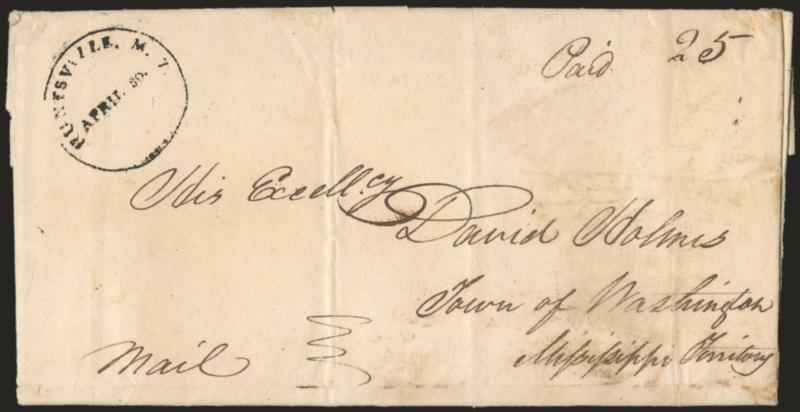 HUNTSVILLE, M.T.
APRIL 30.
Paid 25
His Excell.cy
David Holmes
Town of Washington
Mississippi Territory
Mail